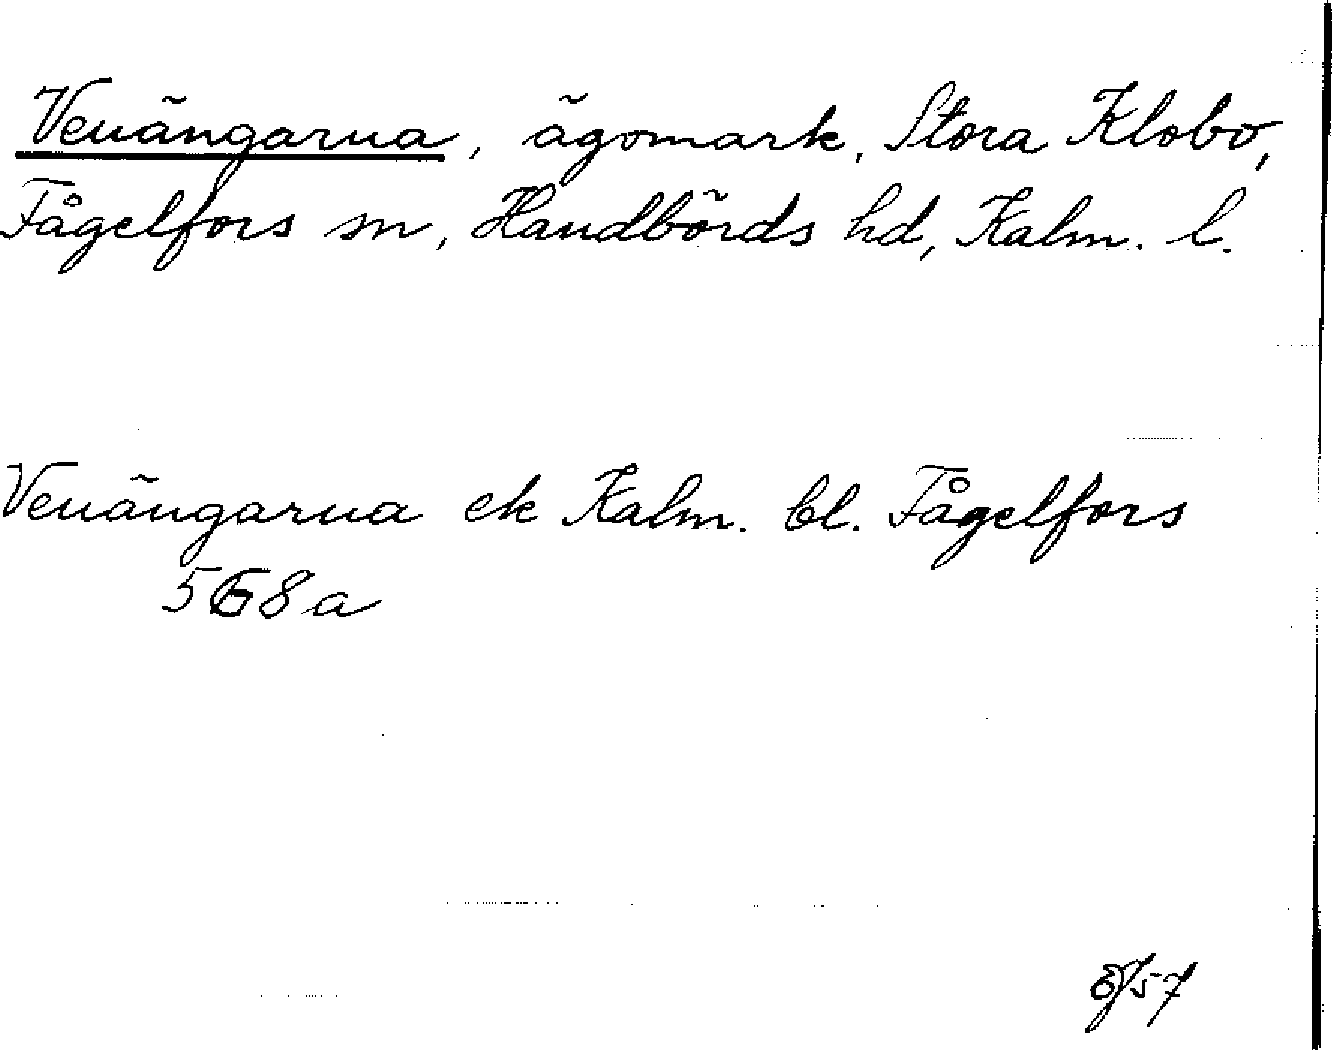 Venängarna, ägomark, Stora Klobo,
Fågelfors sn, Handbörds hd, Kalm. l.
Venängarna ek Kalm. bl. Fågelfors
568a